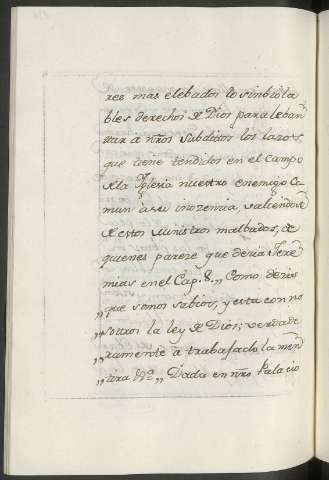 res mas elebados lo s inbiola
bles derechos de Dios para leban
tar a nros Subditos los lazos,
que tiene tendidos en el Campo
de la Iglesia nuestro enemigo Co
mun à su inozenzia, valiendose
de estos Ministros malbados, de
quienes pareze que deria Jere
mias en el Cap. 8. „ Como deris
„ que somos sabios, y esta con no
„ sotros la ley de Dios; verdade
„ ramente à trabajado la men
„ tira &a„ Dada en nro Palacio